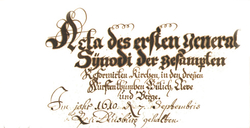 Acta des ersten General
Synodi der Gesampten
Reformirten Kirchen, in den dreÿen
Fürstenthumben Gülich, Cleve
und Berge.
Im jahr 1610. 7. Septembris
Zu Duisburg gehalten.